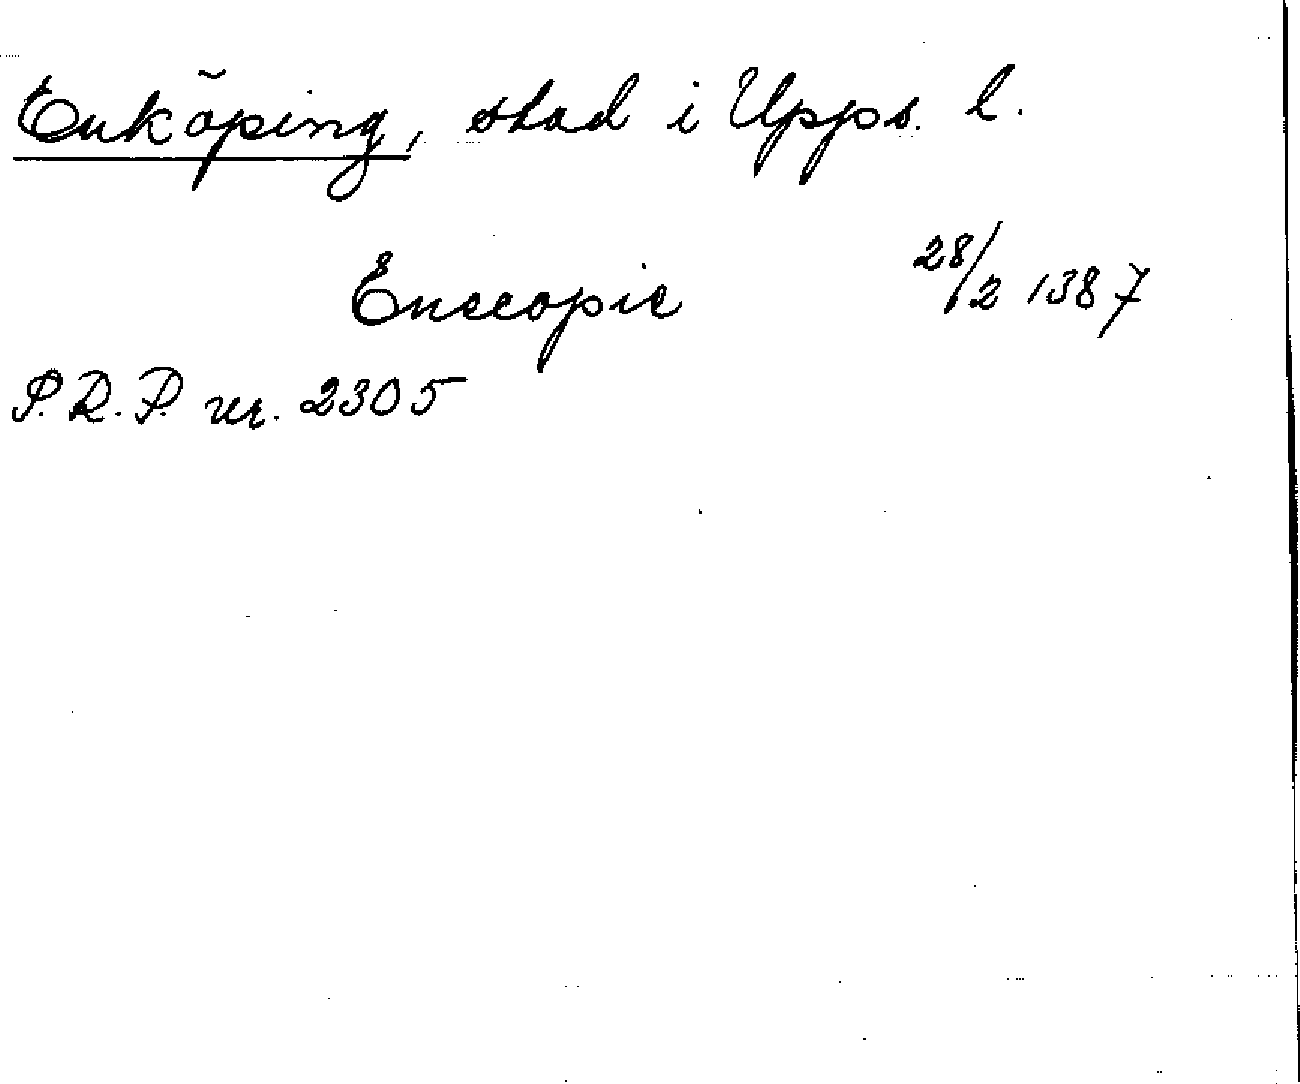 Enköping, stad i Upps. l.
Enccopie 28/2 1387
P.R.P. nr. 2305